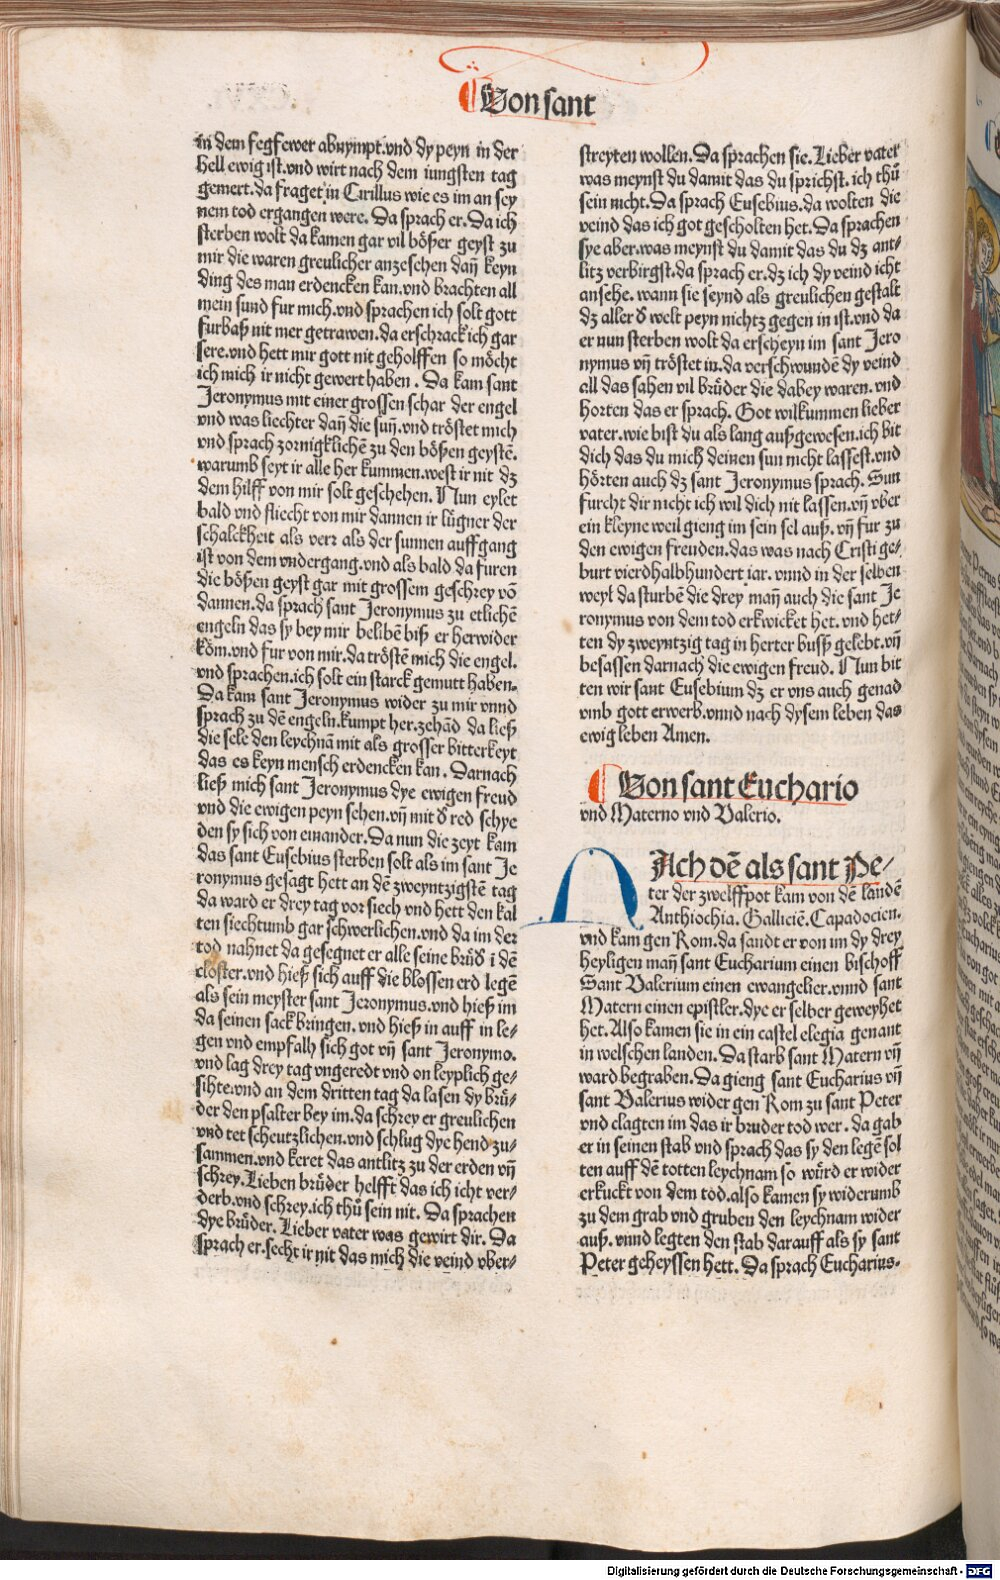 Von sant
in dem fegfewer abnympt.vnd dy peyn in der
hell ewig ist.vnd wirt nach dem iungsten tag
gemert.da fraget in Cirillus wie es im an sey
nem tod ergangen were. Da sprach er. Da ich
sterben wolt da kamen gar vil bößer geyst zu
mir die waren greulicher anzesehen dañ keyn
ding des man erdencken kan.vnd brachten all
mein sund fur mich.vnd sprachen ich solt gott
furbaß nit mer getrawen.da erschrack ich gar
sere.vnd hett mir gott nit geholffen so möcht
ich mich ir nicht gewert haben. Da kam sant
Jeronymus mit einer grossen schar der engel
vnd was liechter dañ die suñ.vnd tröstet mich
vnd sprach zornigklichē zu den bößen geystē.
warumb seyt ir alle her kummen.west ir nit dz
dem hilff von mir solt geschehen. Nun eylet
bald vnd fliecht von mir dannen ir lügner der
schalckheit als verr als der sunnen auffgang
ist von dem vndergang.vnd als bald da furen
die bößen geyst gar mit grossem geschrey vō
dannen.da sprach sant Jeronymus zu etlichē
engeln das sy bey mir belibē biß er herwider
köm.vnd fur von mir.da tröstē mich die engel.
vnd sprachen.ich solt ein starck gemutt haben.
Da kam sant Jeronymus wider zu mir vnnd
sprach zu dē engeln.kumpt her.zehād da ließ
die sele den leychnā mit als grosser bitterkeyt
das es keyn mensch erdencken kan. Darnach
ließ mich sant Jeronymus dye ewigen freud
vnd die ewigen peyn sehen.vñ mit ð red schye
den sy sich von einander. Da nun die zeyt kam
das sant Eusebius sterben solt als im sant Je
ronymus gesagt hett an dē zweyntzigstē tag
da ward er drey tag vor siech vnd hett den kal
ten siechtumb gar schwerlichen.vnd da im der
tod nahnet da gesegnet er alle seine brüð i dē
closter.vnd hieß sich auff die blossen erd legē
als sein meyster sant Jeronymus.vnd hieß im
da seinen sack bringen.vnd hieß in auff in le-
gen vnd empfalh sich got vñ sant Jeronymo.
vnd lag drey tag vngeredt vnd on leyplich ge-
sihte.vnd an dem dritten tag da lasen dy brü-
der den psalter bey im.da schrey er greulichen
vnd tet scheutzlichen.vnd schlug dye hend zu-
sammen.vnd keret das antlitz zu der erden vñ
schrey.Lieben brüder helfft das ich icht ver-
derb.vnd schrey.ich thü sein nit. Da sprachen
dye brüder. Lieber vater was gewirt dir. Da
sprach er.secht ir nit das mich die veind vber-
streyten wollen. Da sprachen sie. Lieber vater
was meynst du damit das du sprichst. ich thü
sein nicht. Da sprach Eusebius.da wolten die
veind das ich got gescholten het. Da sprachen
sye aber.was meynst du damit das du dz ant-
litz verbirgst.da sprach er.dz ich dy veind icht
ansehe. wann sie seynd als greulichen gestalt
dz aller ð welt peyn nichtz gegen in ist.vnd da
er nun sterben wolt da erscheyn im sant Jero
nymus vñ tröstet in.da verschwundē dy veind
all das sahen vil brüder die dabey waren. vnd
horten das er sprach. Got wilkummen lieber
vater.wie bist du als lang außgewesen.ich bit
dich das du mich deinen sun nicht lassest.vnd
hörten auch dz sant Jeronymus sprach. Sun
furcht dir nicht ich wil dich nit lassen.vñ vber
ein kleyne weil gieng im sein sel auß. vñ fur zu
den ewigen freuden.das was nach Cristi ge-
burt vierdhalbhundert iar. vnnd in der selben
weyl da sturbē die drey mañ auch die sant Je
ronymus von dem tod erkwicket het. vnd het-
ten dy zweyntzig tag in herter buß gelebt.vñ
besassen darnach die ewigen freud. Nun bit
ten wir sant Eusebium dz er vns auch genad
vmb gott erwerb.vnnd nach dysem leben das
ewig leben Amen.
Von sant Euchario
vnd Materno vnd Valerio.
NAch dē als sant Pe-
ter der zwelffpot kam von dē landē
Anthiochia. Galliciē. Capadocien.
vnd kam gen Rom.da sandt er von im dy drey
heyligen mañ sant Eucharium einen bischoff
Sant Valerium einen ewangelier.vnnd sant
Matern einen epistler.dye er selber geweyhet
het. Also kamen sie in ein castel elegia genant
in welschen landen. Da starb sant Matern vñ
ward begraben. Da gieng sant Eucharius vñ
sant Valerius wider gen Rom zu sant Peter
vnd clagten im das ir bruder tod wer. da gab
er in seinen stab vnd sprach das sy den legē sol
ten auff dē totten leychnam so würd er wider
erkuckt von dem tod.also kamen sy widerumb
zu dem grab vnd gruben den leychnam wider
auß. vnnd legten den stab darauff als sy sant
Peter geheyssen hett. Da sprach Eucharius.
Digitalisierung gefördert durch die Deutsche Forschungsgemeinschaft - DFG